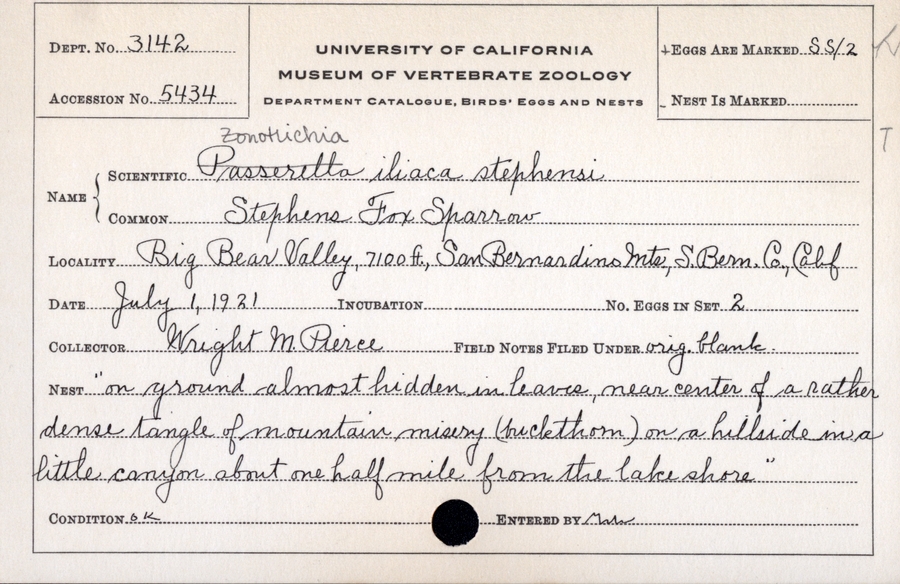 DEPT. No. 3142
ACCESSION No. 5434
UNIVERSITY OF CALIFORNIA
MUSEUM OF VERTEBRATE ZOOLOGY
DEPARTMENT CATALOGUE, BIRDS' EGGS AND NESTS
+EGGS ARE MARKED SS/2
- NEST IS MARKED
T
Zonotrichia
NAME
SCIENTIFIC Passerella iliaca stephensi
COMMON Stephens Fox Sparrow
LOCALITY Big Bear Valley, 7100 ft., San Bernardino Mts., S. Bern. Co., Calif
DATE July 1, 1921 INCUBATION No. EGGS IN SET 2
COLLECTOR Wright M. Pierce FIELD NOTES FILED UNDER orig. blank.
NEST "on ground almost hidden in leaves, near center of a rather
dense tangle of mountain misery (buckthorn) on a hillside in a
little canyon about one half mile from the lake shore"
CONDITION OK ENTERED BY